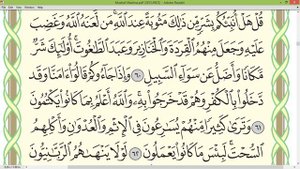 Mushaf Madina.pdf (SECURED) - Adobe Reader
قُلْ هَلْ أُنَبِّئُكُم بِشَرٍّ مِّن ذَٰلِكَ مَثُوبَةً عِندَ ٱللَّهِ مَن لَّعَنَهُ ٱللَّهُ وَغَضِبَ
عَلَيْهِ وَجَعَلَ مِنْهُمُ ٱلْقِرَدَةَ وَٱلْخَنَازِيرَ وَعَبَدَ ٱلطَّٰغُوتَ أُوْلَٰٓئِكَ شَرٌّ
مَّكَانًا وَأَضَلُّ عَن سَوَآءِ ٱلسَّبِيلِ ٦٠ وَإِذَا جَآءُوكُمْ قَالُوٓاْ ءَامَنَّا وَقَد
دَّخَلُواْ بِٱلْكُفْرِ وَهُمْ قَدْ خَرَجُواْ بِهِۦ وَٱللَّهُ أَعْلَمُ بِمَا كَانُواْ يَكْتُمُونَ
٦١ وَتَرَىٰ كَثِيرًا مِّنْهُمْ يُسَٰرِعُونَ فِي ٱلْإِثْمِ وَٱلْعُدْوَٰنِ وَأَكْلِهِمُ
ٱلسُّحْتَ لَبِئْسَ مَا كَانُواْ يَعْمَلُونَ ٦٢ لَوْلَا يَنْهَىٰهُمُ ٱلرَّبَّٰنِيُّونَ